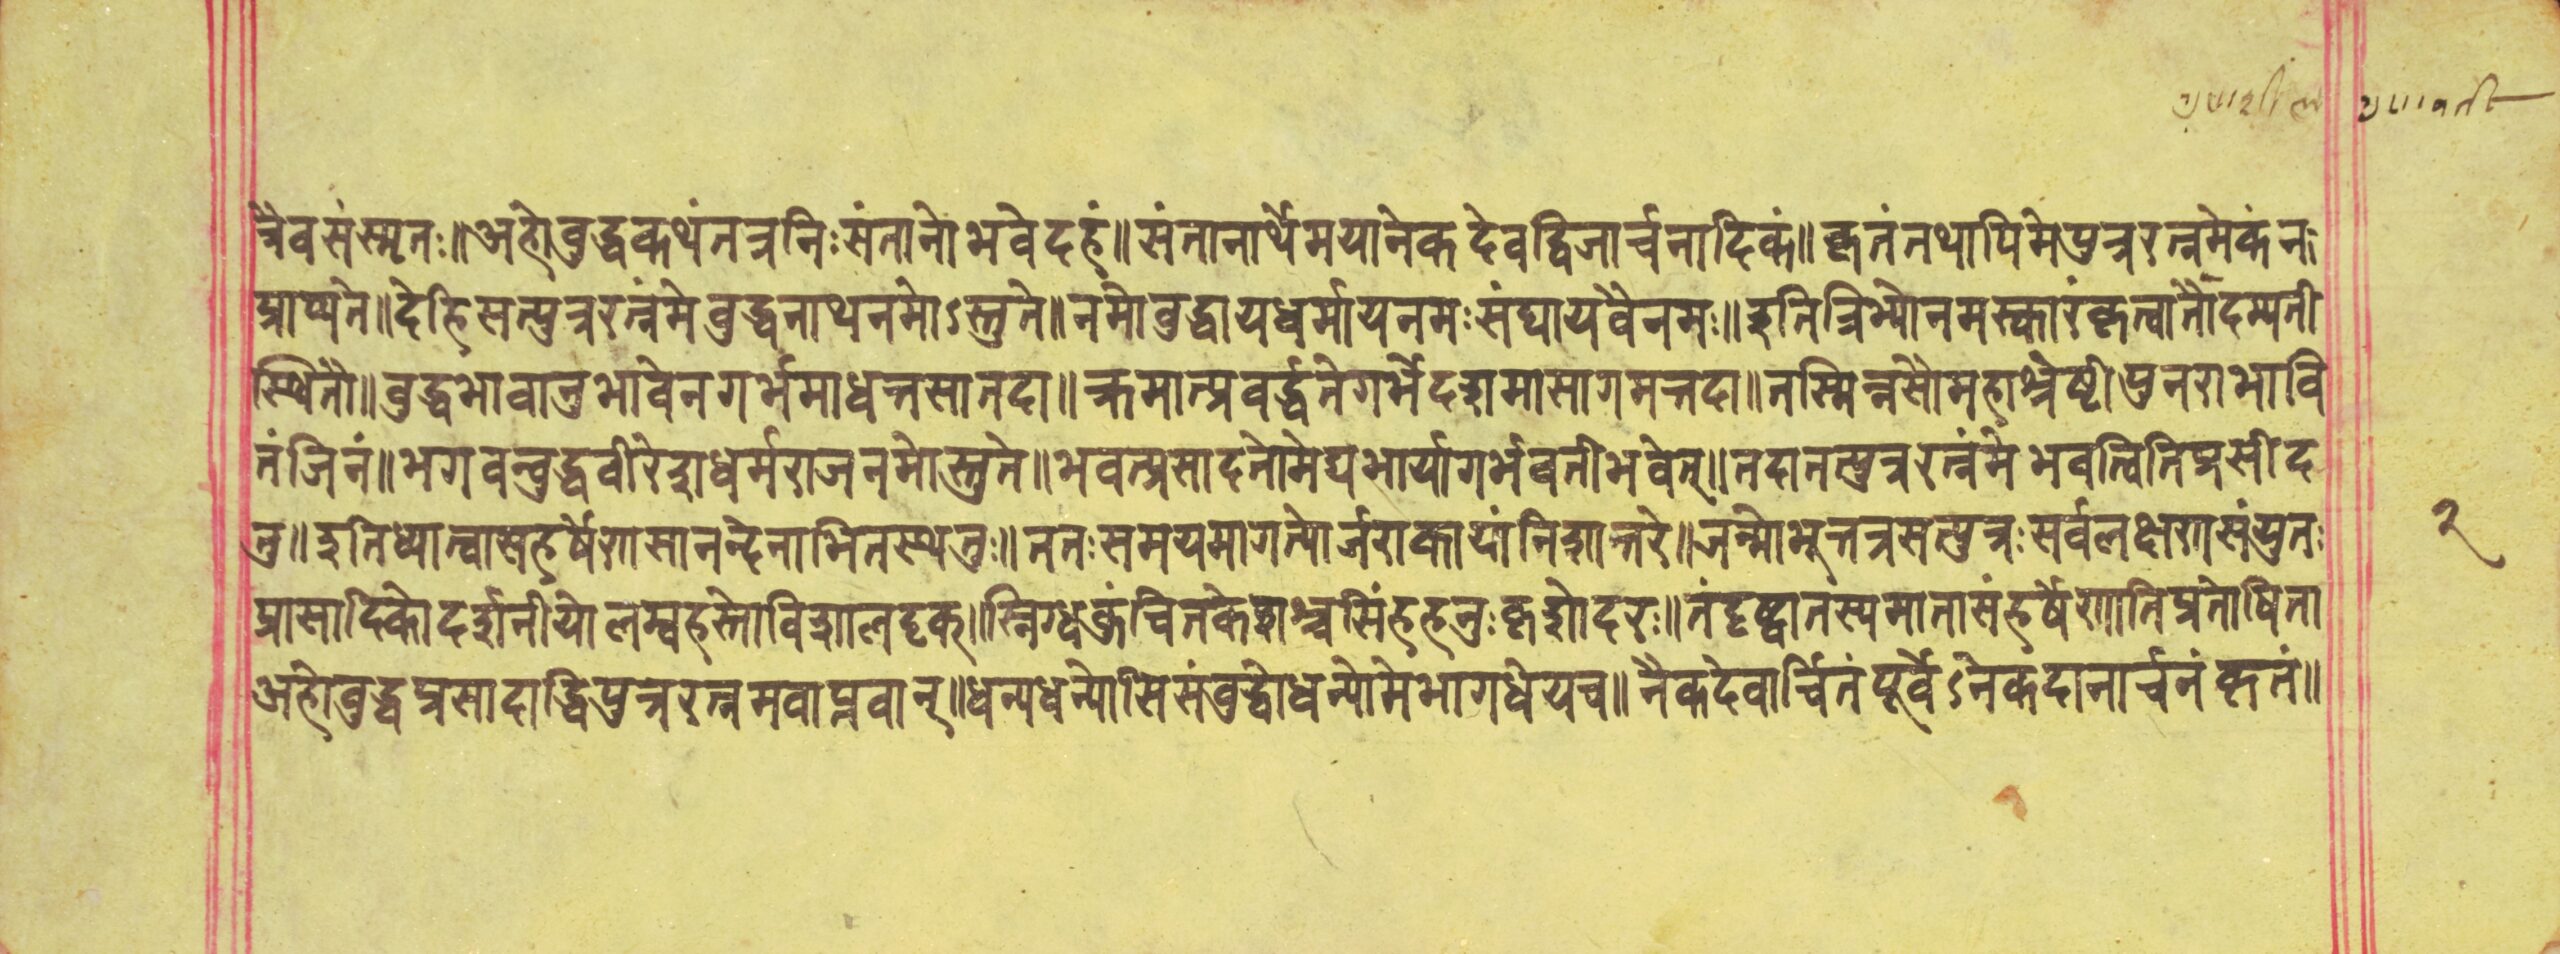 त्रैवसंस्मृतः॥अहोबुद्धकथंतत्रनिःसंतानोभवेदहं॥संतानार्थेमयानेकदेवद्विजार्चनादिकं॥कृतंतथापिमेपुत्ररत्नमेकंन
प्राप्यते॥देहिसत्पुत्ररत्नंमेबुद्धनाथनमोऽस्तुते॥नमोबुद्धायधर्मायनमःसंघायवैनमः॥इतित्रिभ्योनमस्कारंकृत्वातौदम्पती
स्थितौ॥बुद्धभावानुभावेनगर्भमाधत्तसातदा॥क्रमात्प्रवर्द्धतेगर्भेदशमासागमत्तदा॥तस्मिन्नसौमहाश्रेष्ठीपुनराभावि
तंजिनं॥भगवन्बुद्धवीरेशधर्मराजनमोस्तुते॥भवत्प्रसादतोमेद्यभार्यागर्भवतीभवेत्॥तदानत्पुत्ररत्नंमेभवत्वितिप्रसीद
तु॥इतिध्यात्वासहर्षेणसानन्देनाभितस्थतुः॥ततःसमयमागत्योर्जराकायांनिशान्तरे॥जन्मोभूत्तत्रसत्पुत्रःसर्वलक्षणसंयुतः
प्रासादिकोदर्शनीयोलम्बहस्तोविशालदृक्॥स्निग्धक्रुंचितकेशश्चसिंहहनुःकृशोदरः॥तंदृष्ट्वातस्यमातासंहर्षेणातिप्रतोषिता
अहोबुद्धप्रसादाद्धिपुत्ररत्नमवाप्तवान्॥धन्यधन्योसिसंबुद्धोधन्योमेभागधेयच॥नैकदेवार्चितंपूर्वेऽनेकदानार्चनंकृतं॥
२